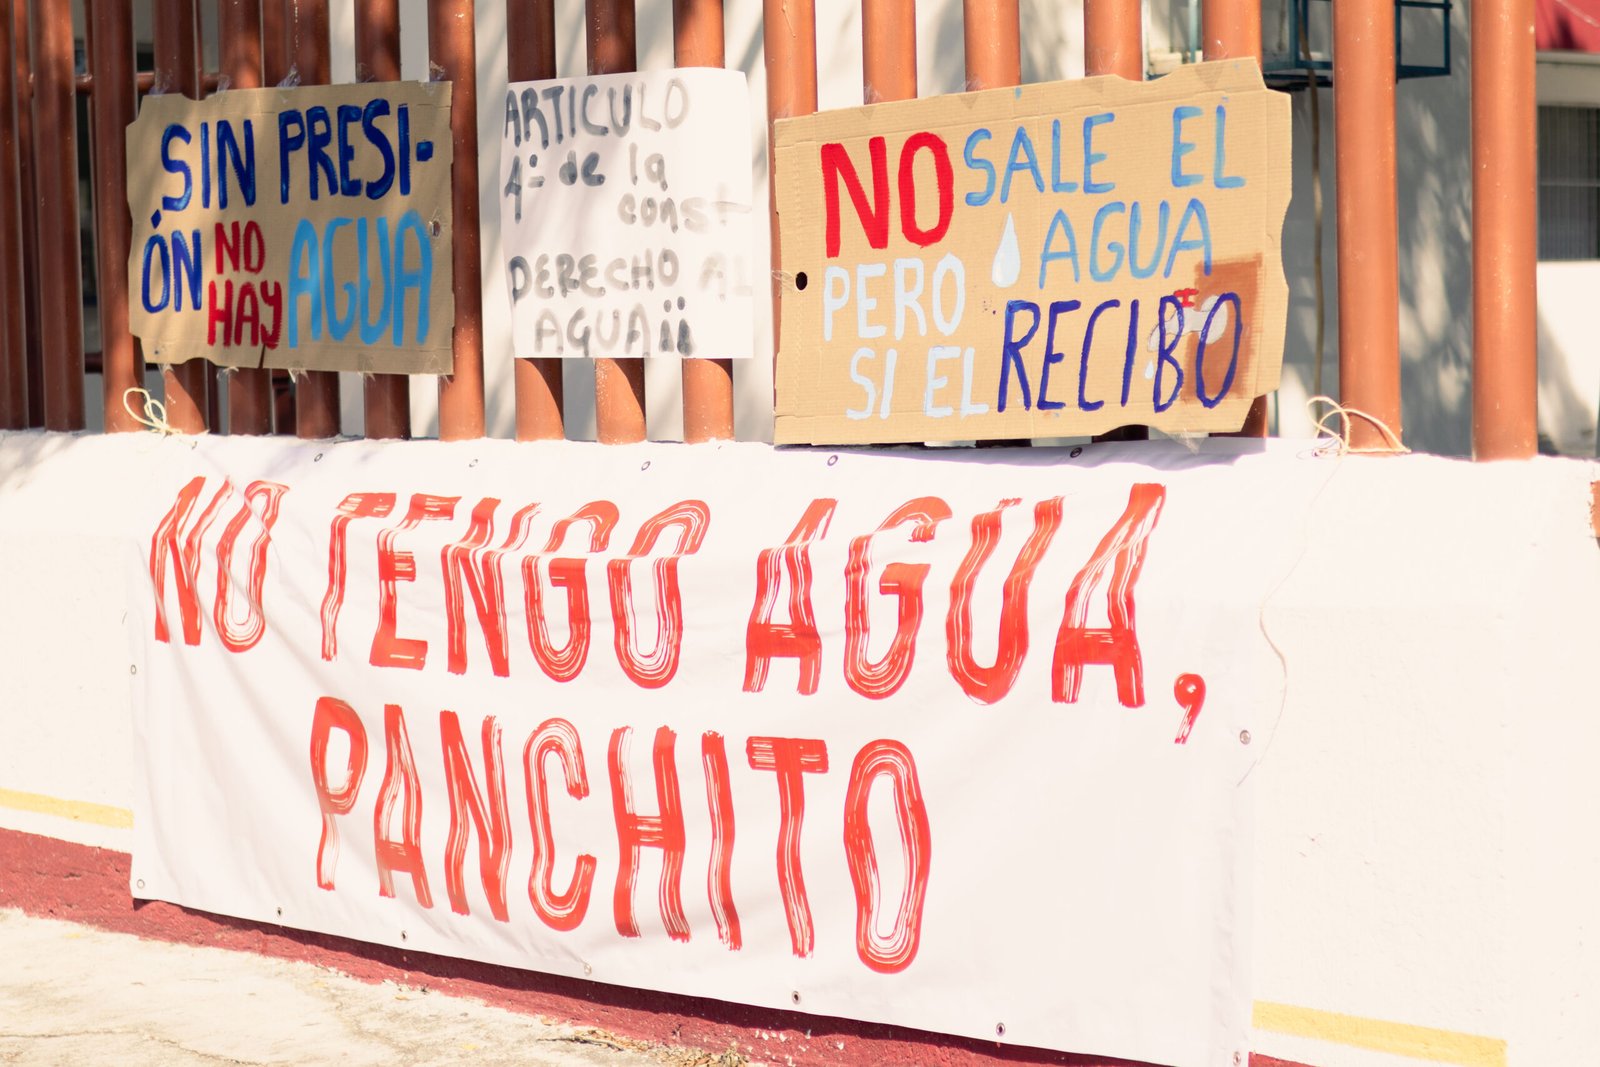 SIN PRESI-
ÓN NO HAY AGUA
ARTICULO
4º de la
const
DERECHO AL
AGUA¡¡
NO SALE EL
AGUA
PERO
SI EL RECIBO
NO TENGO AGUA,
PANCHITO